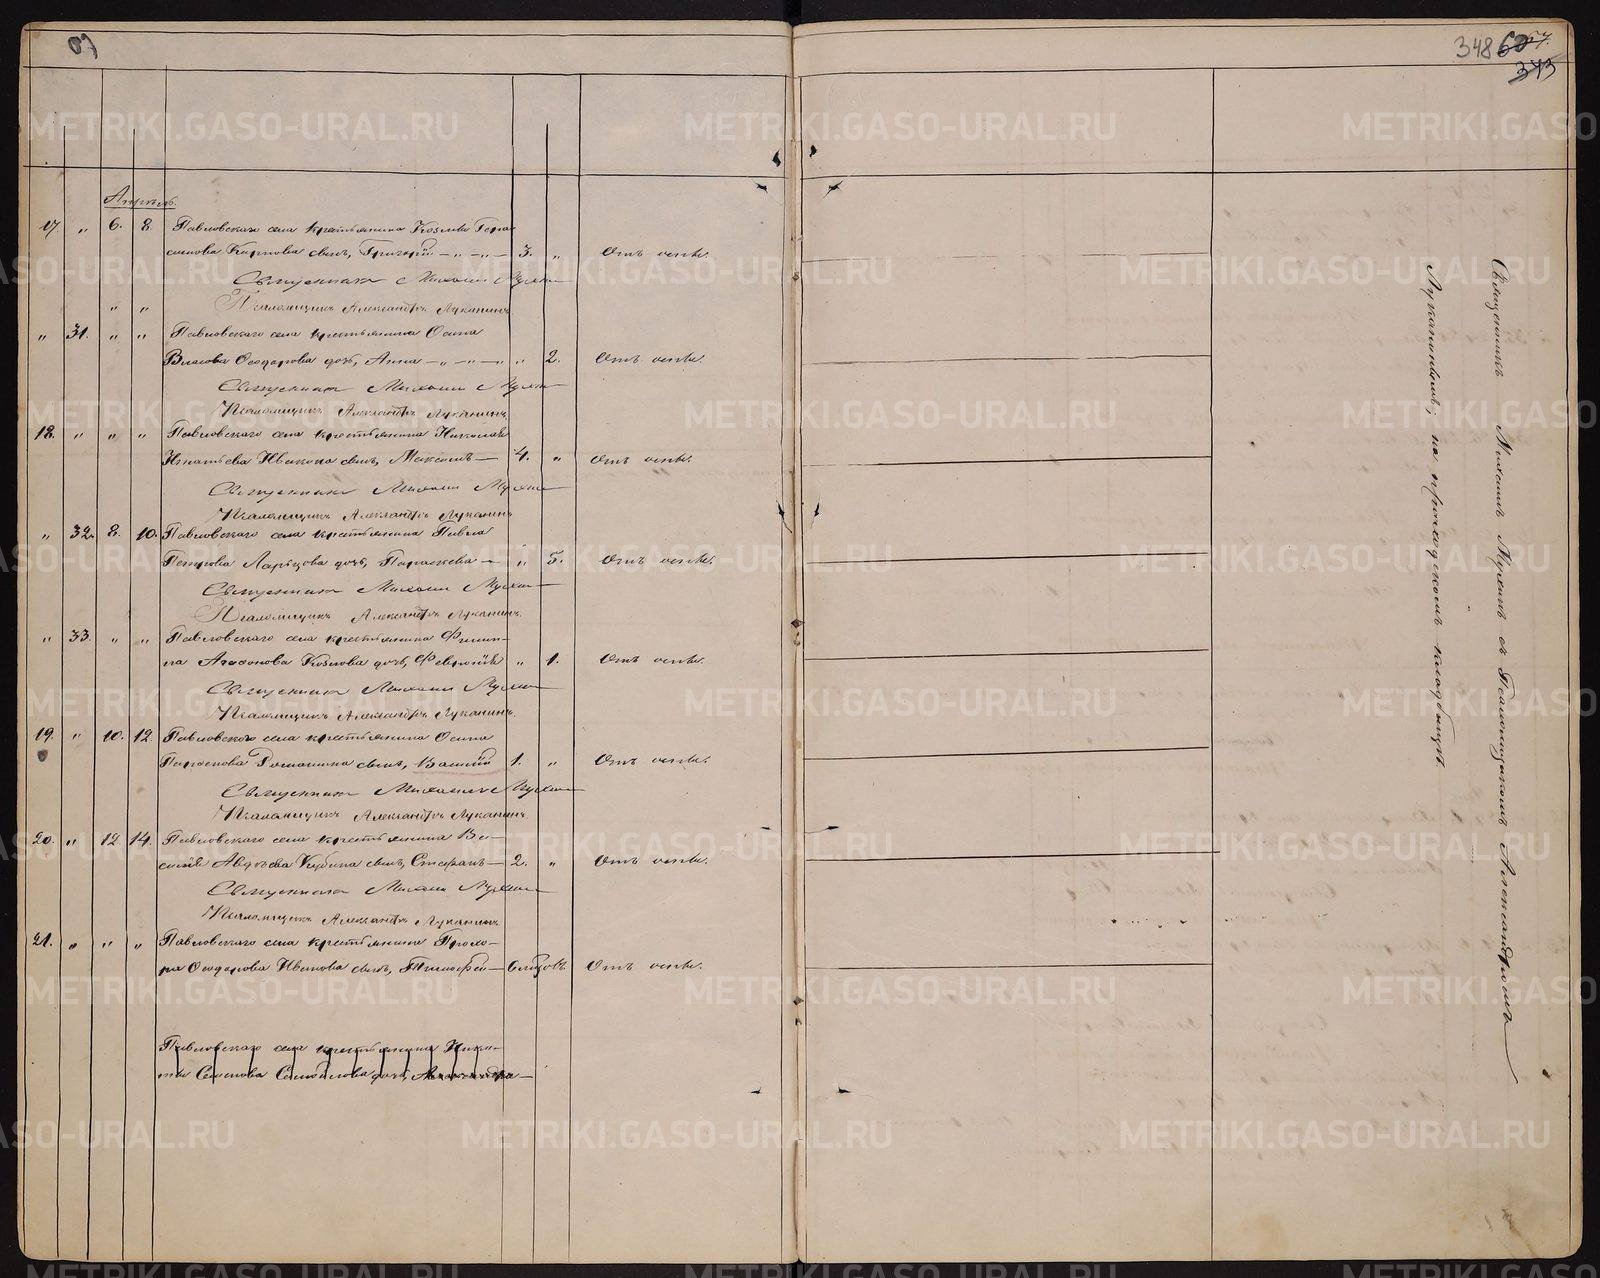 60
348 60 57.
343
Апрѣль.
17. " 6. 8. Павловскаго села крестьянина Козмы Гера-
симова Карпова сынъ, Григорій — " — " — 3. " Отъ оспы.
Священникъ Михаилъ Мухинъ
" " Псаломщикъ Александръ Луканинъ
" 31. " " Павловскаго села крестьянина Осипа
Власова Ѳеодорова дочь, Анна — " — " — " 2. Отъ оспы.
Священникъ Михаилъ Мухинъ
Псаломщикъ Александръ Луканинъ
18. " " " Павловскаго села крестьянина Николая
Игнатьева Ивакова сынъ, Максимъ — 4. " Отъ оспы.
Священникъ Михаилъ Мухинъ
Псаломщикъ Александръ Луканинъ
" 32. 8. 10. Павловскаго села крестьянина Павла
Петрова дочь, Параскева — " 5. Отъ оспы.
Священникъ Михаилъ Мухинъ
Псаломщикъ Александръ Луканинъ.
" 33. " " Павловскаго села крестьянина Филип-
па Агафонова Козлова дочь, Февронія " 1. Отъ оспы.
Священникъ Михаилъ Мухинъ
Псаломщикъ Александръ Луканинъ.
19. " 10. 12. Павловскаго села крестьянина Осипа
сынъ, 1. " Отъ оспы.
Священникъ Михаилъ Мухинъ
Псаломщикъ Александръ Луканинъ.
20. " 12. 14. Павловскаго села крестьянина Ва-
силія Авдѣева сынъ, Стефанъ — 2. " Отъ оспы.
Священникъ Михаилъ Мухинъ
Псаломщикъ Александръ Луканинъ
21. " " " Павловскаго села крестьянина Прохо-
ра Ѳеодорова Иванова сынъ, Тимофей — 6 мѣсяц. Отъ оспы.
Павловскаго села крестьянина Ники-
ты Семенова Самойлова дочь, Александра —
Священникъ Михаилъ Мухинъ съ Псаломщикомъ Александромъ
Луканинымъ, на приходскомъ кладбищѣ.
METRIKI.GASO-URAL.RU